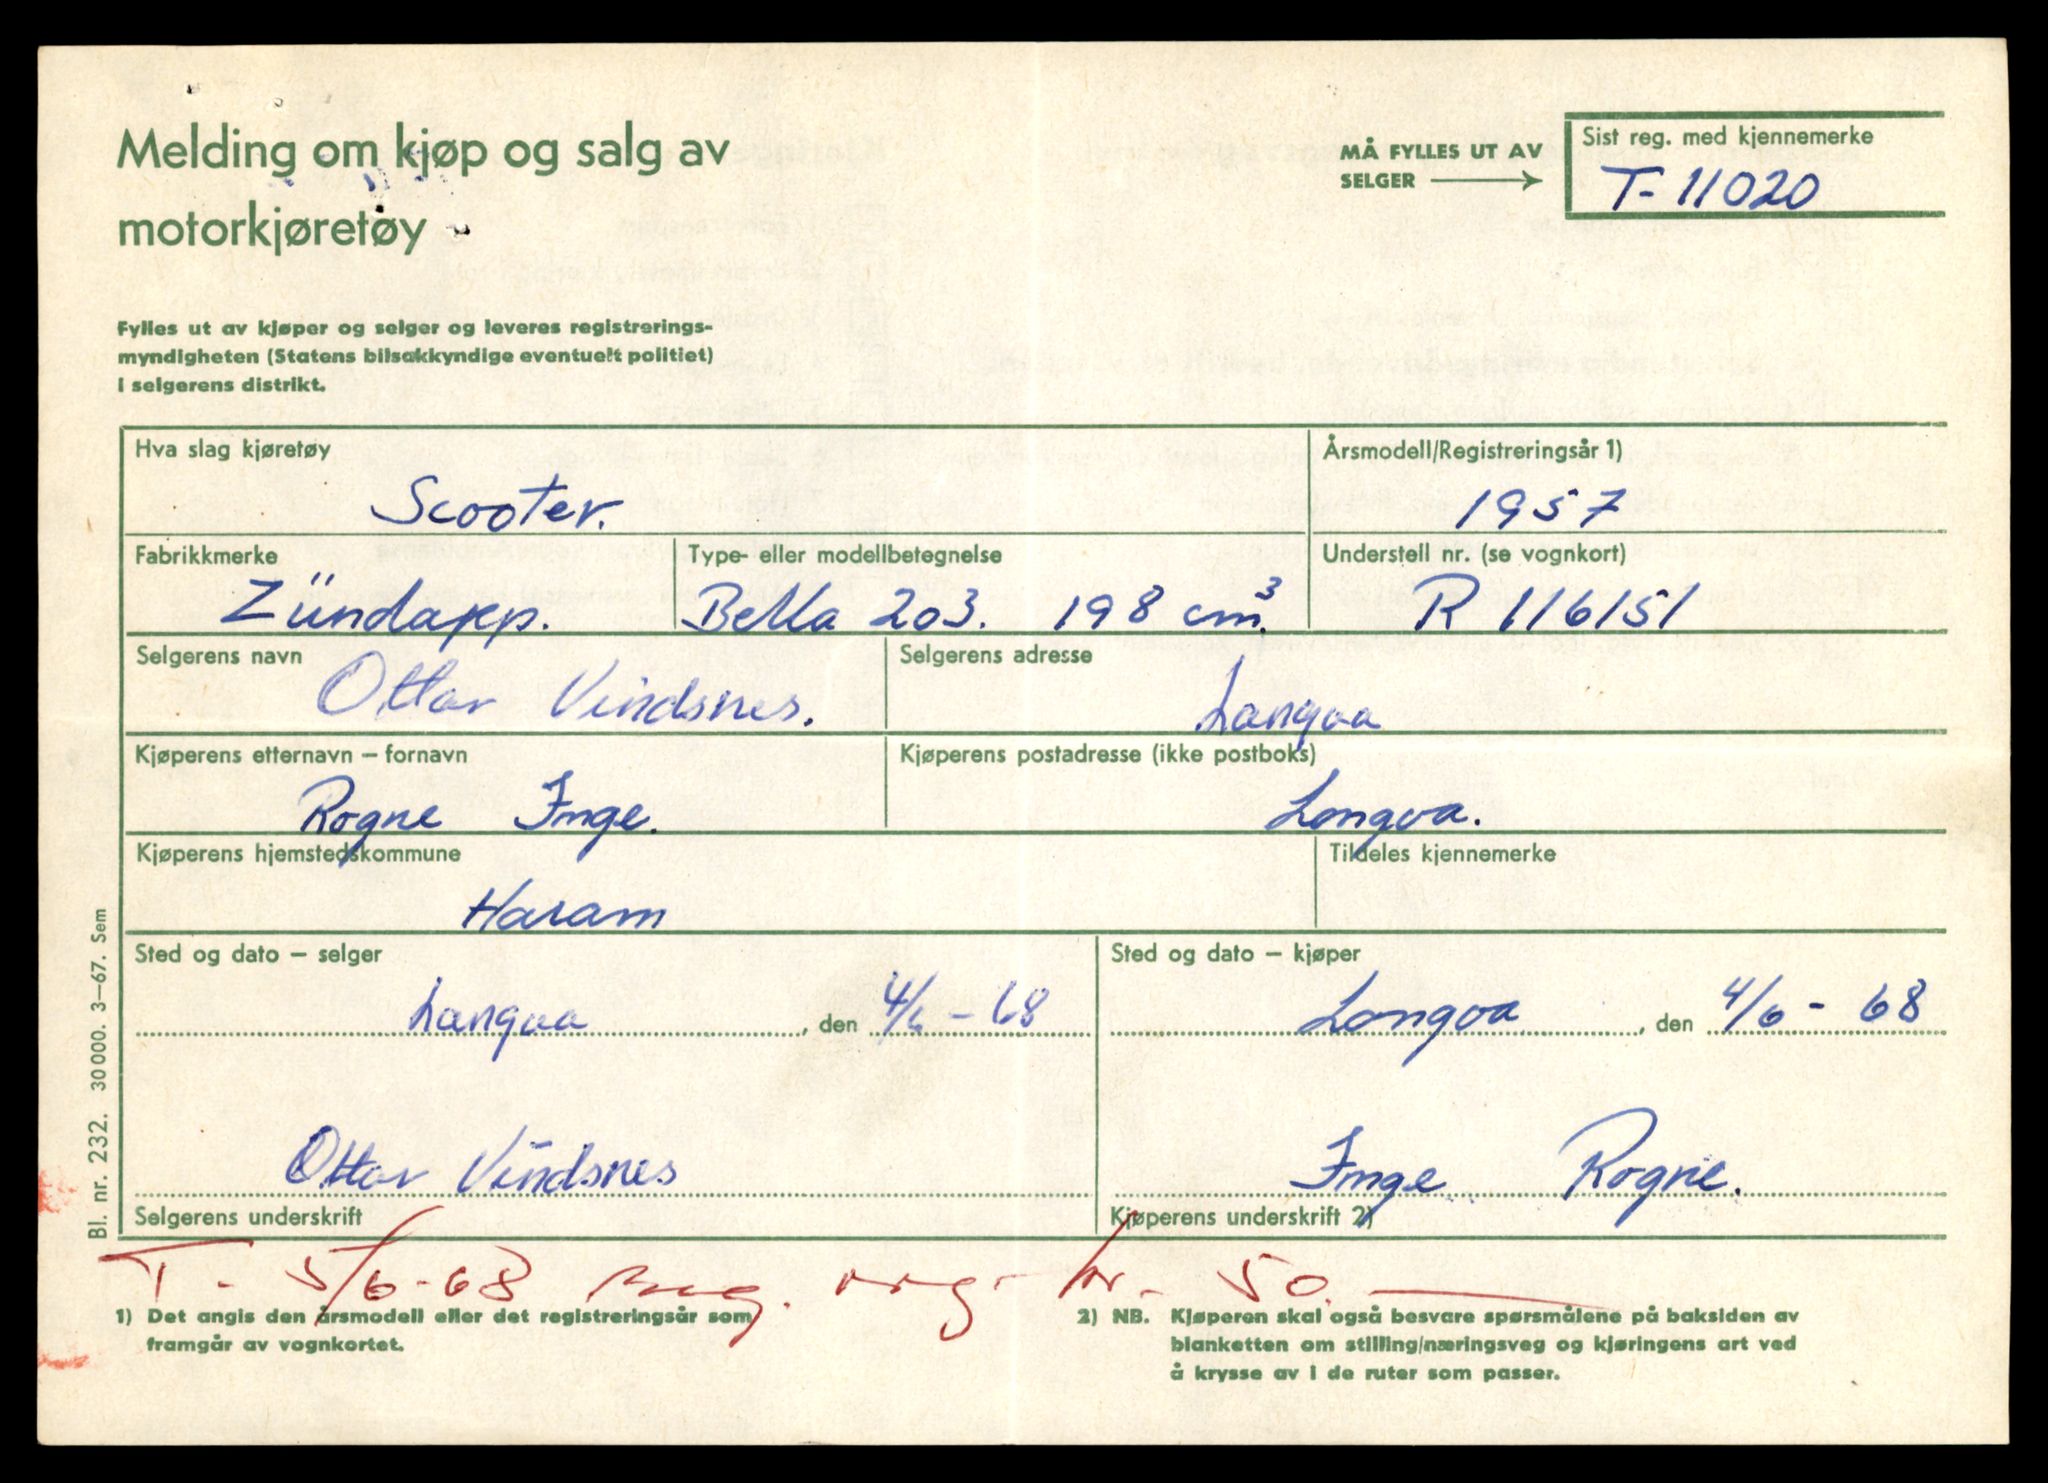 Melding om kjøp og salg av
motorkjøretøy
MÅ FYLLES UT AV
SELGER
Sist reg. med kjennemerke
T- 11020
Fylles ut av kjøper og selger og leveres registrerings-
myndigheten (Statens bilsakkyndige eventuelt politiet)
i selgerens distrikt.
Hva slag kjøretøy
Scooter.
Årsmodell/Registreringsår 1)
1957
Fabrikkmerke
Zündapp.
Type- eller modellbetegnelse
Bella 203. 198 cm³.
Understell nr. (se vognkort)
R 116151
Selgerens navn
Ottar Vindsnes.
Selgerens adresse
Langva
Kjøperens etternavn – fornavn
Rogne Inge.
Kjøperens postadresse (ikke postboks)
Longva.
Kjøperens hjemstedskommune
Haram
Tildeles kjennemerke
Sted og dato – selger
Langva, den 4/6 - 68
Sted og dato – kjøper
Longva, den 4/6 - 68
Ottar Vindsnes
Selgerens underskrift
Inge Rogne.
Kjøperens underskrift 2)
T- 5/6-68 reg. avg. kr. 50.
1) Det angis den årsmodell eller det registreringsår som
framgår av vognkortet.
2) NB. Kjøperen skal også besvare spørsmålene på baksiden av
blanketten om stilling/næringsveg og kjøringens art ved
å krysse av i de ruter som passer.
Bl. nr. 232. 30 000. 3–67. Sem